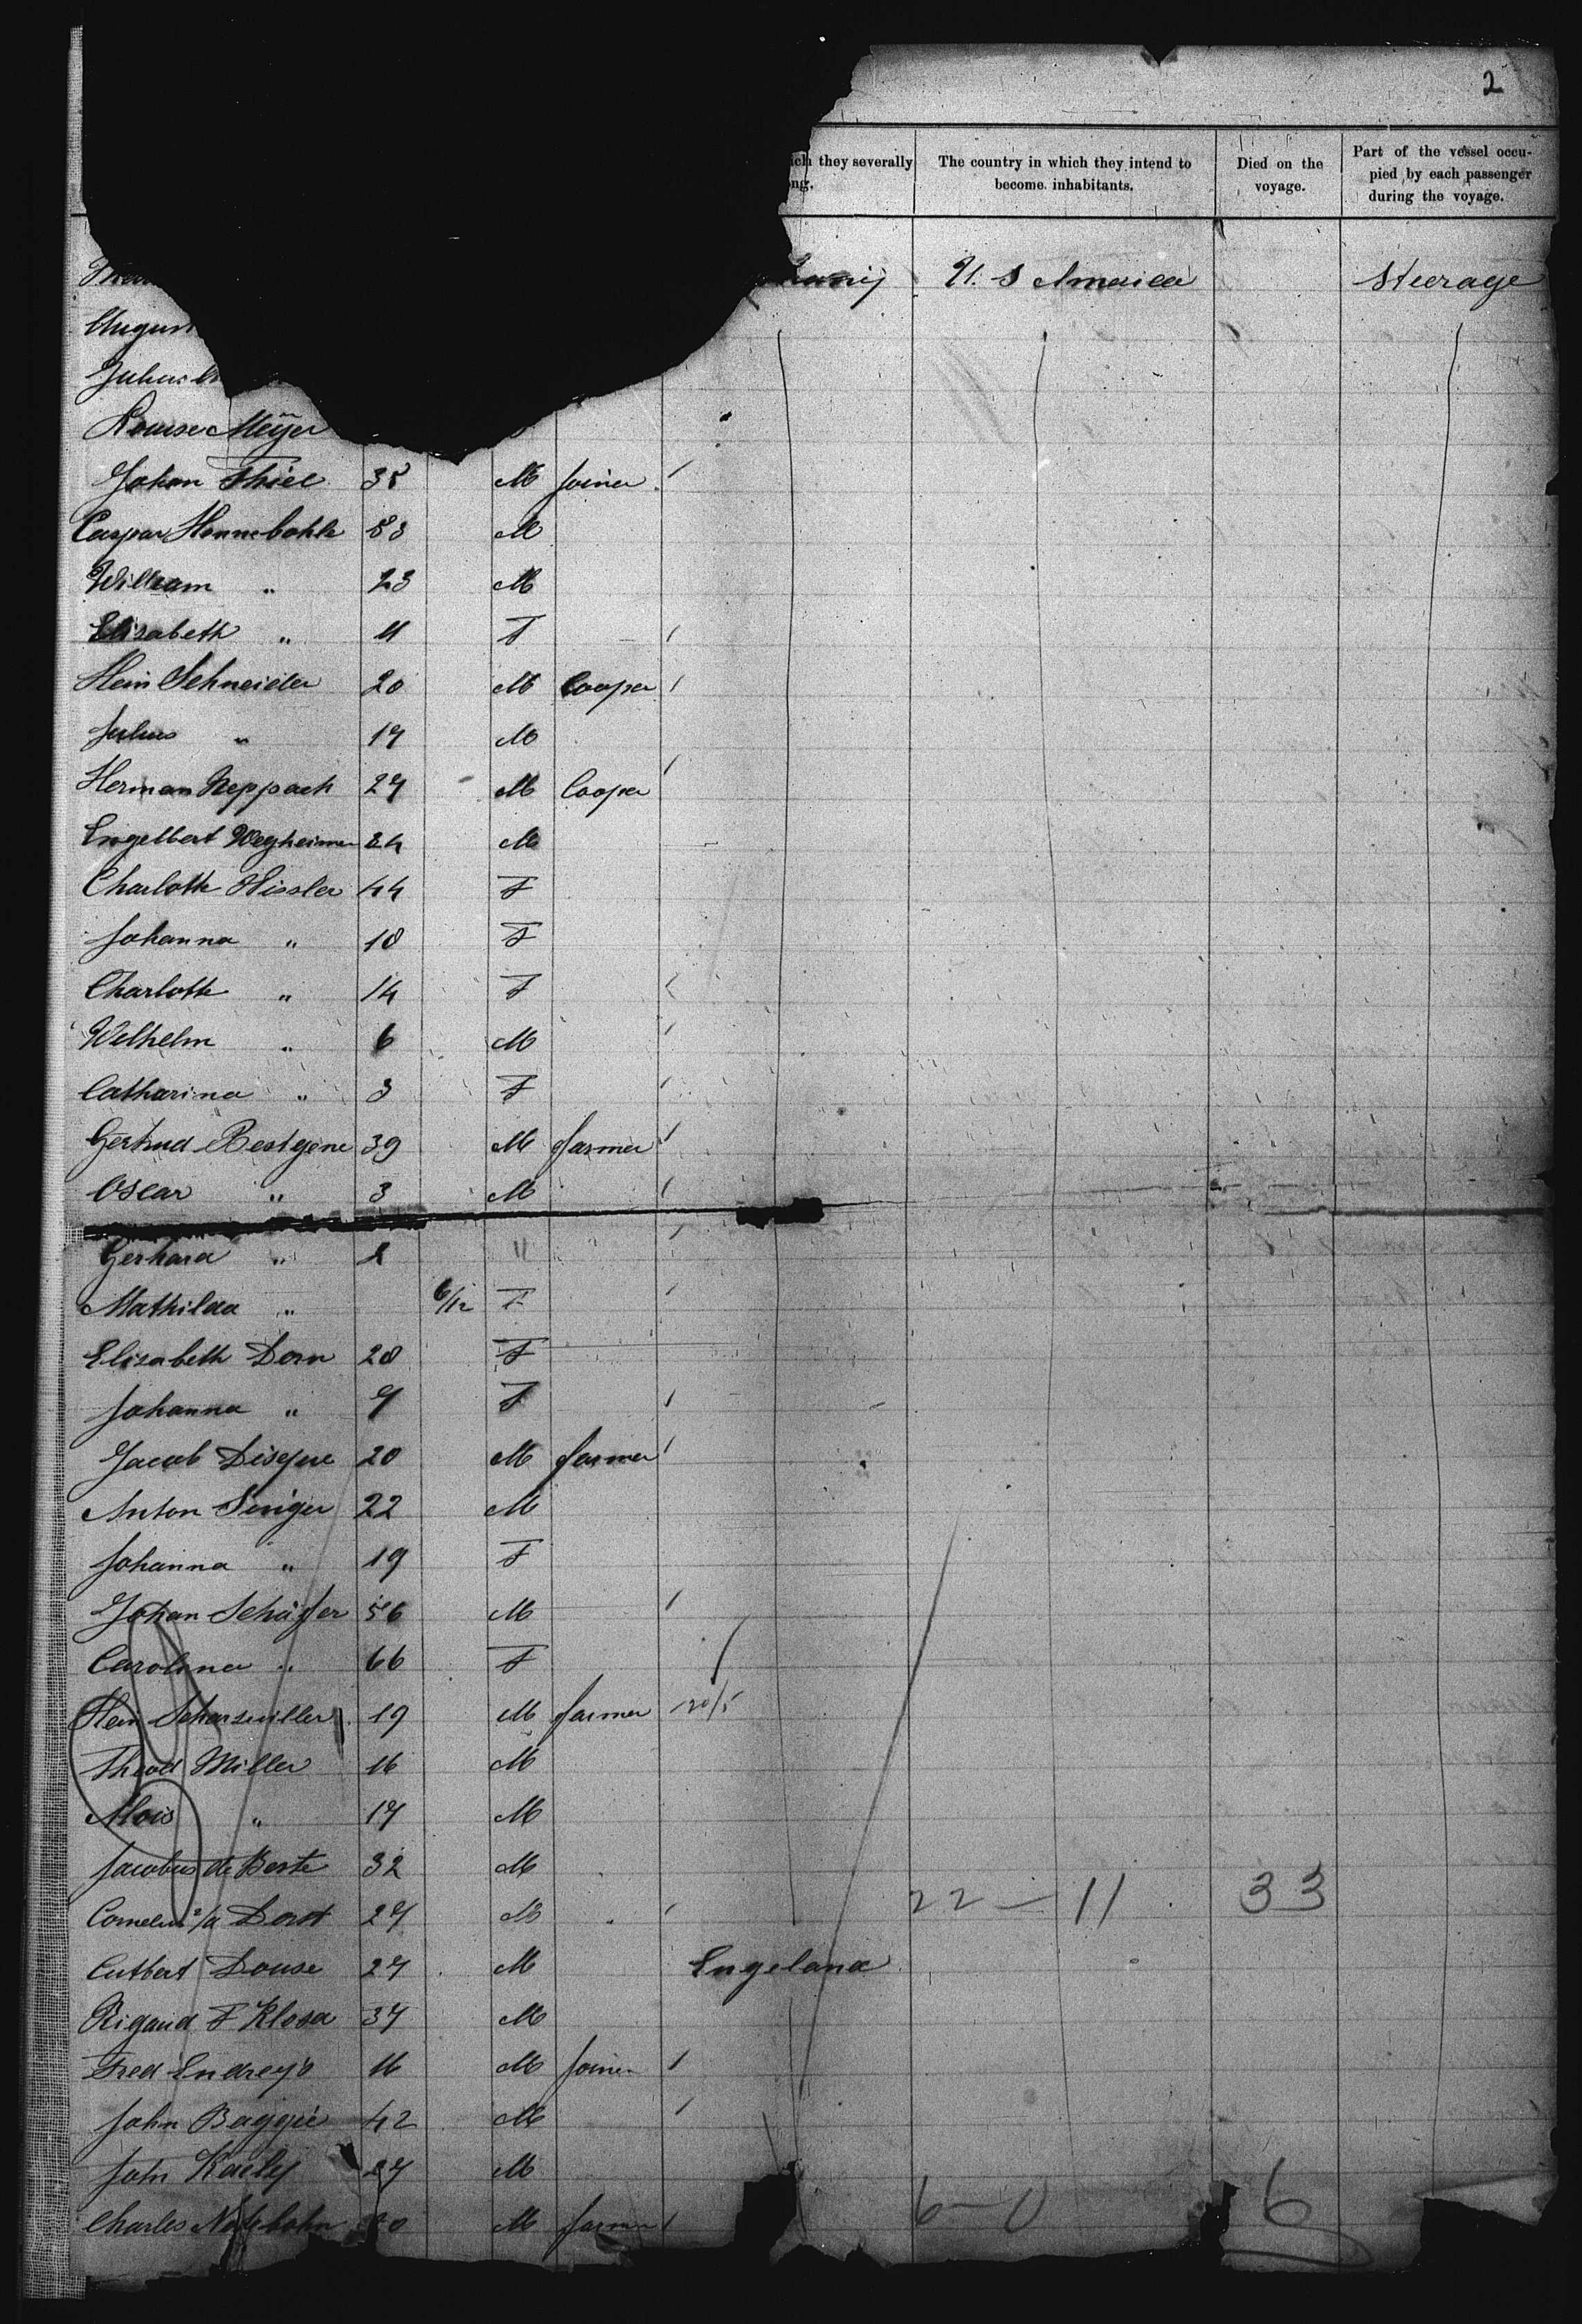 2
they severally The country in which they intend to become inhabitants. Died on the voyage. Part of the vessel occupied by each passenger during the voyage.
U. S America Steerage
Louise Meijer
Johan Thiel 35 M Joiner
Caspar Hennebohle 53 M
William " 23 M
Elisabeth " 11 F
Hein Schneider 20 M Cooper
Julius " 17 M
Herman Neppach 27 M Cooper
Engelbert Wegheimer 24 M
Charlotte Hissler 44 F
Johanna " 18 F
Charlotte " 14 F
Wilhelm " 6 M
Catharina " 3 F
Gertrud Restgene 39 M farmer
Oscar " 3 M
Gerhard " "
Mathilda " 6/12 F
Elisabeth Dorn 28 F
Johanna " 7 F
Jacob Disque 20 M farmer
Anton Singer 22 M
Johanna " 19 F
Johan Schäffer 56 M
Carolina " 66 F
Hein 19 M farmer
Theod Miller 16 M
Alois " 17 M
Jacobus de Beste 32 M
Cornelus v/d Dorst 27 M 22 — 11 33
Cutbert Douse 27 M Engeland
Rigaud F Klosa 37 M
Fred Endrejo 16 M Joiner
John Baggie 42 M
John Kaely 27 M
Charles M farmer 6 — 0 6